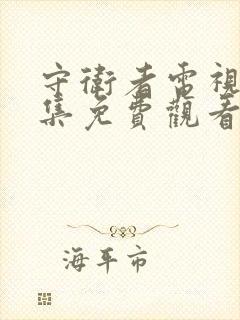 守衛者電視
集免費觀看
海平市